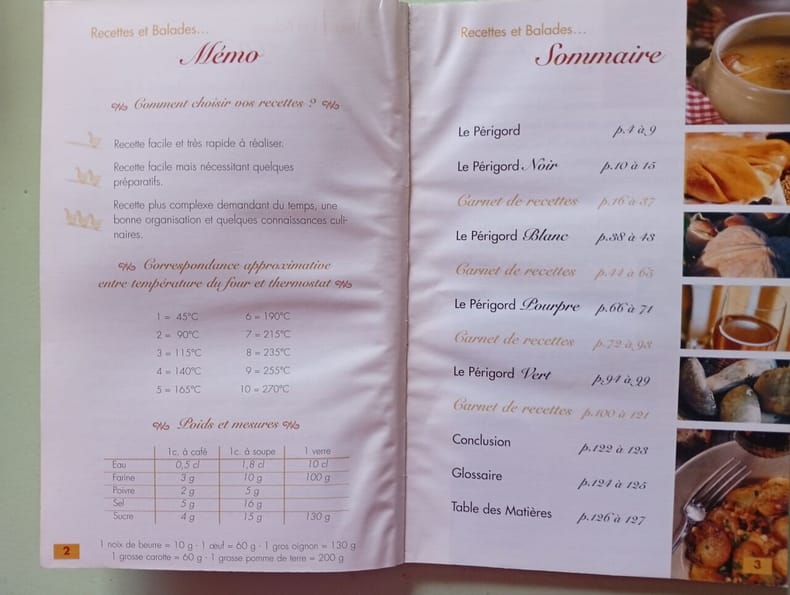 Recettes et Balades...
Mémo
Comment choisir vos recettes ?
Recette facile et très rapide à réaliser.
Recette facile mais nécessitant quelques
préparatifs.
Recette plus complexe demandant du temps, une
bonne organisation et quelques connaissances culi-
naires.
Correspondance approximative
entre température du four et thermostat
1 = 45°C 6 = 190°C
2 = 90°C 7 = 215°C
3 = 115°C 8 = 235°C
4 = 140°C 9 = 255°C
5 = 165°C 10 = 270°C
Poids et mesures
1c. à café 1c. à soupe 1 verre
Eau 0,5 cl 1,8 cl 10 cl
Farine 3 g 10 g 100 g
Poivre 2 g 5 g
Sel 5 g 16 g
Sucre 4 g 15 g 130 g
1 noix de beurre = 10 g · 1 œuf = 60 g · 1 gros oignon = 130 g
1 grosse carotte = 60 g · 1 grosse pomme de terre = 200 g
2
Recettes et Balades...
Sommaire
Le Périgord p.4 à 9
Le Périgord Noir p.10 à 15
Carnet de recettes p.16 à 37
Le Périgord Blanc p.38 à 43
Carnet de recettes p.44 à 65
Le Périgord Pourpre p.66 à 71
Carnet de recettes p.72 à 93
Le Périgord Vert p.94 à 99
Carnet de recettes p.100 à 121
Conclusion p.122 à 123
Glossaire p.124 à 125
Table des Matières p.126 à 127
3